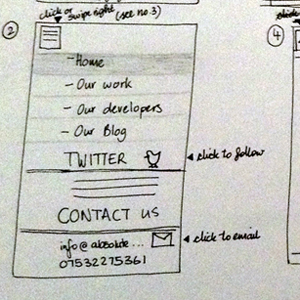 click or
swipe right (see no.3)
2
4
- Home
- Our work
- Our developers
- Our Blog
TWITTER
click to follow
CONTACT US
info@absolute...
click to email
07532275361